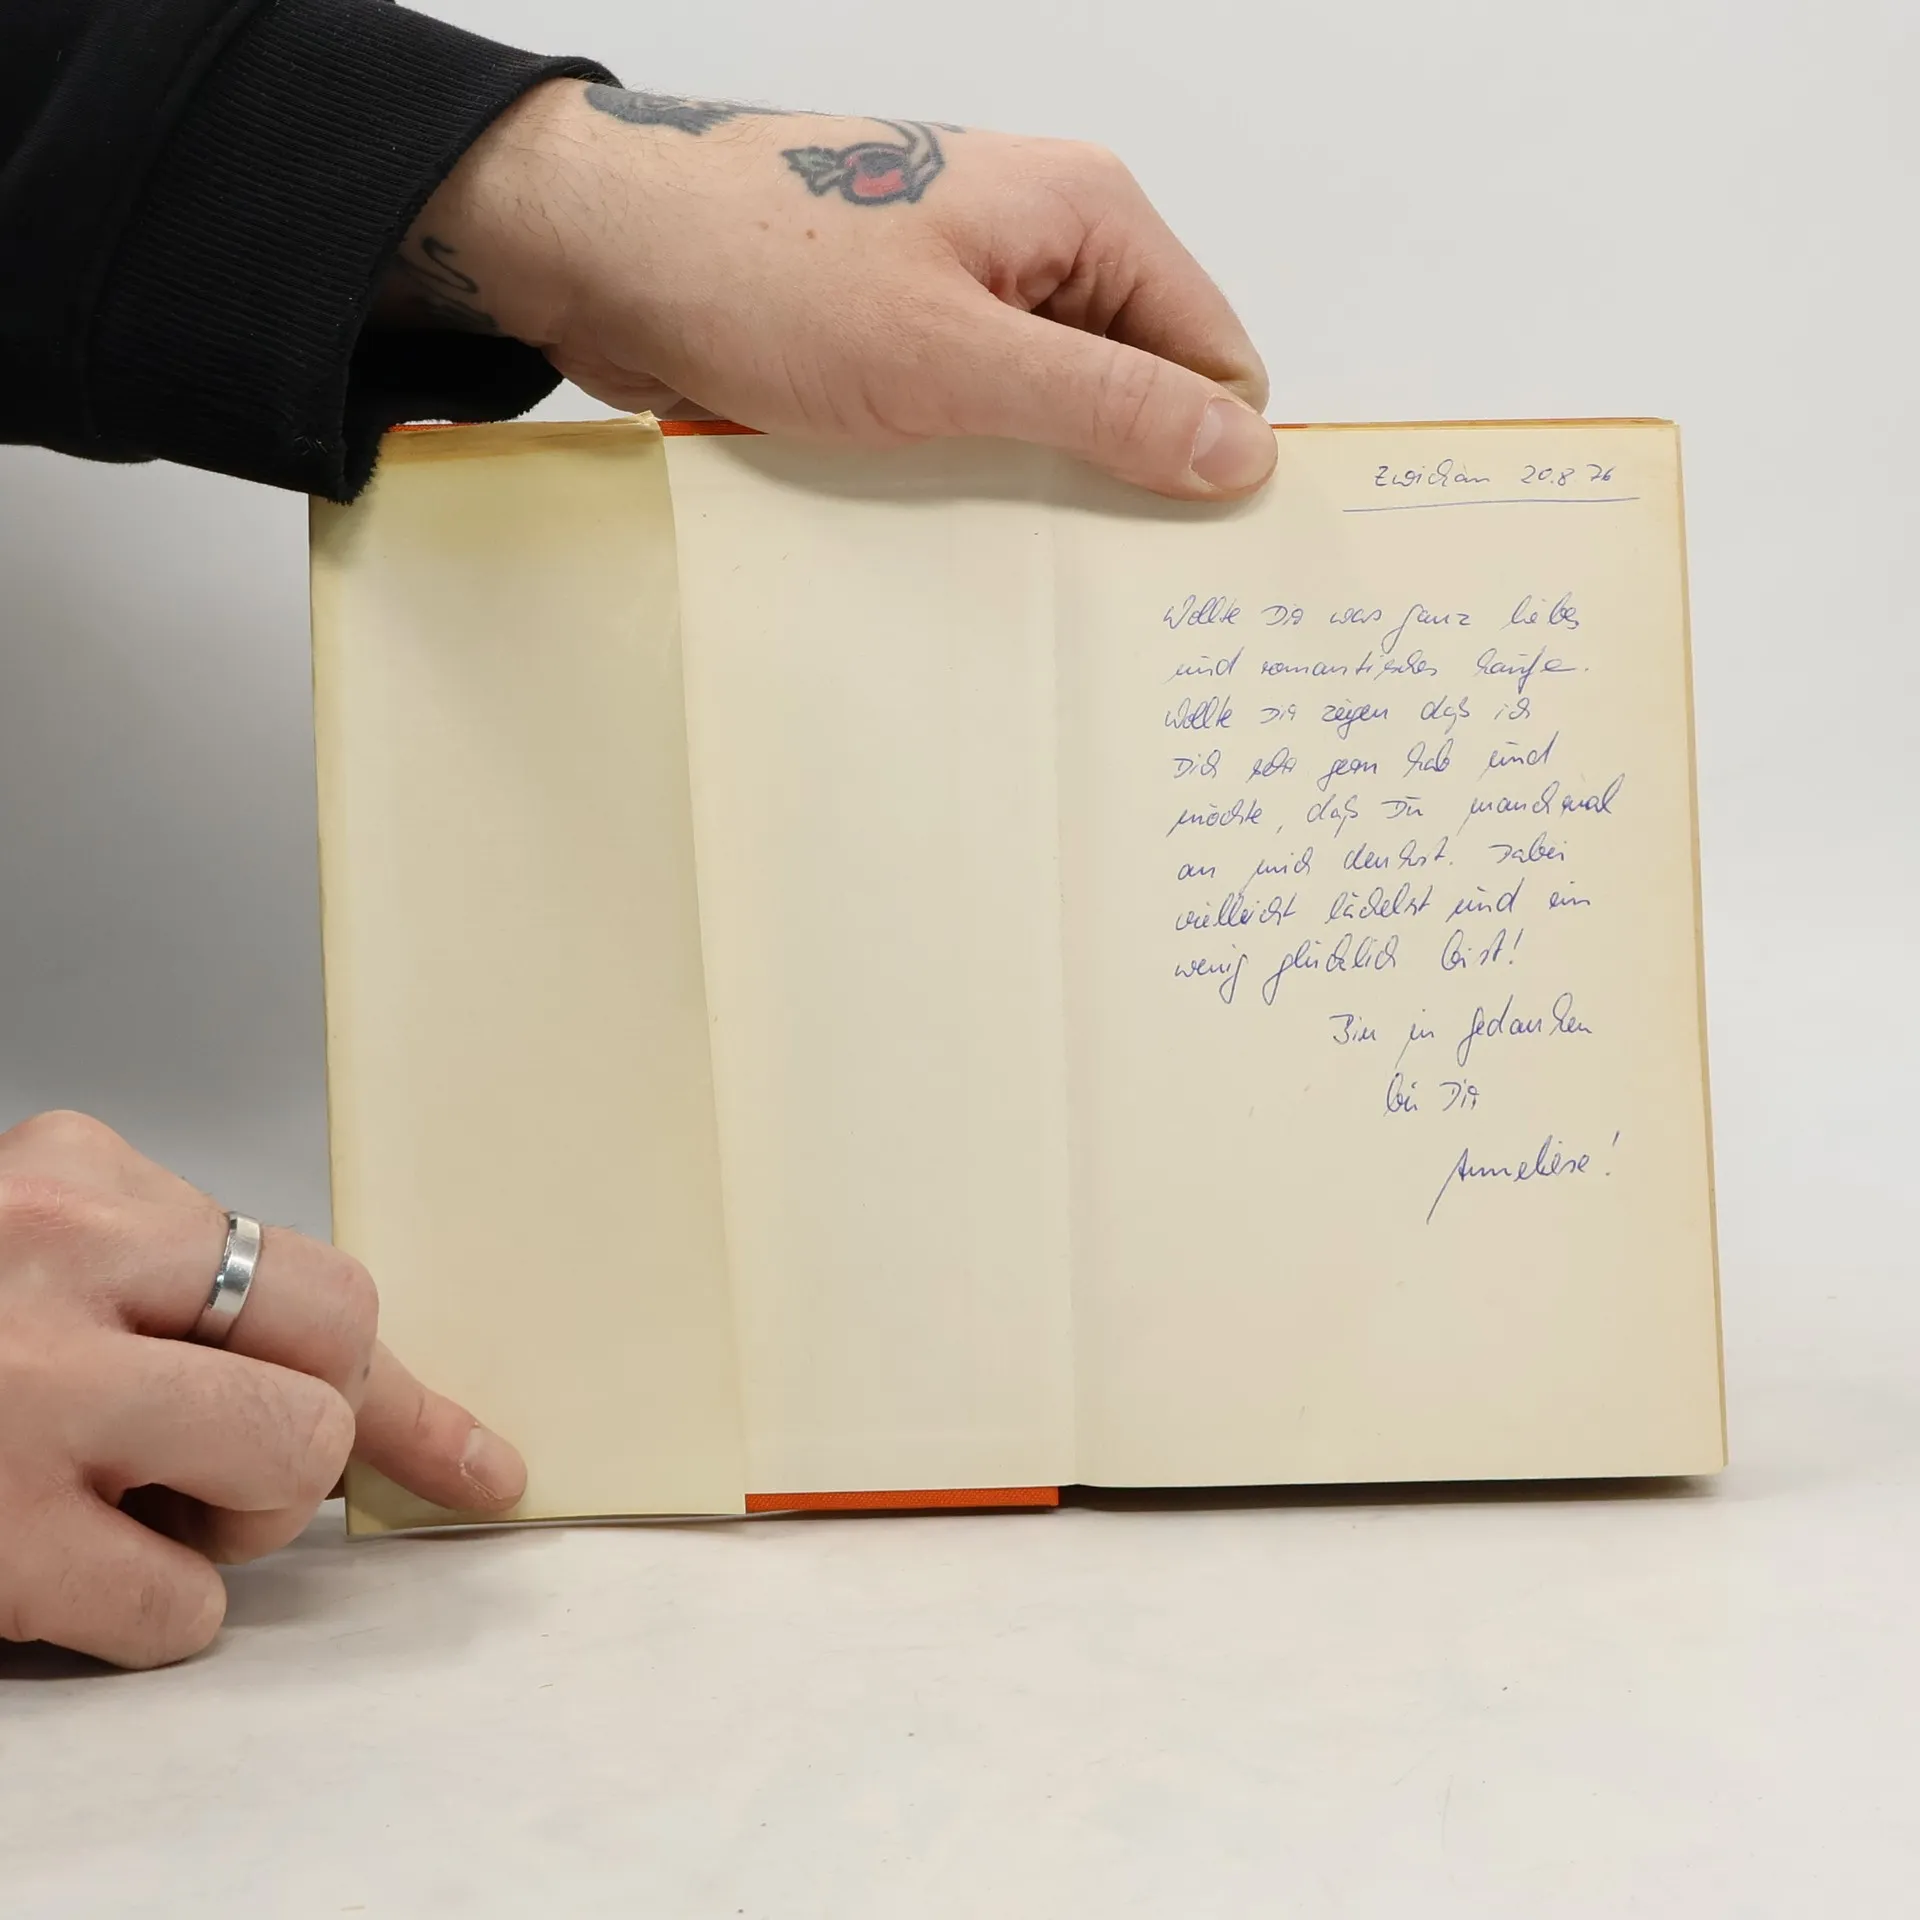 Zwickau 20.8.76
Wollte Dir was ganz liebes
und romantisches kaufe.
Wollte Dir zeigen daß ich
Dich sehr gern hab und
möchte, daß Du manchmal
an mich denkst. Dabei
vielleicht lächelst und ein
wenig glücklich bist!
Bin in Gedanken
bei Dir
Anneliese!